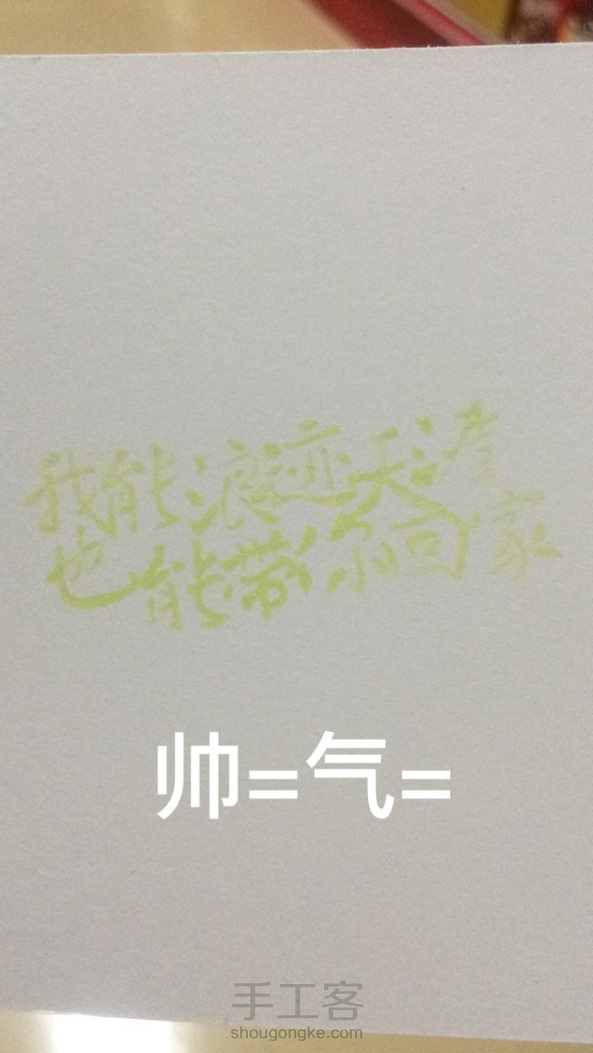 我能浪迹天涯
也能带你回家
帅=气=
手工客
shougongke.com